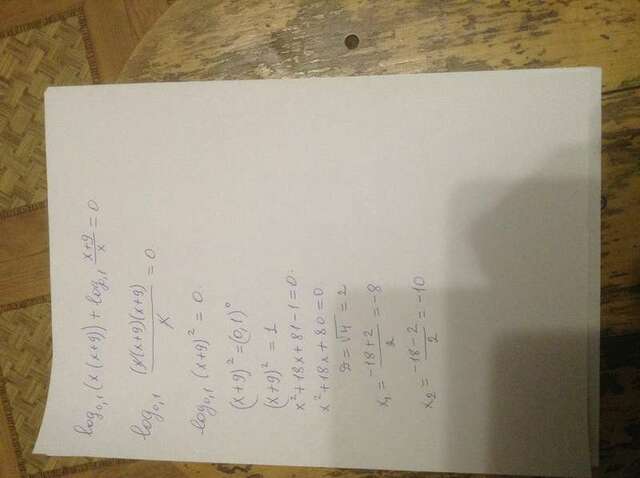 log₀,₁(x(x+9)) + log₀,₁ (x+9)/x = 0
log₀,₁ (x(x+9)(x+9))/x = 0
log₀,₁ (x+9)² = 0
(x+9)² = (0,1)⁰
(x+9)² = 1
x²+18x+81-1=0
x²+18x+80=0
D=√4=2
x₁=(-18+2)/2=-8
x₂=(-18-2)/2=-10